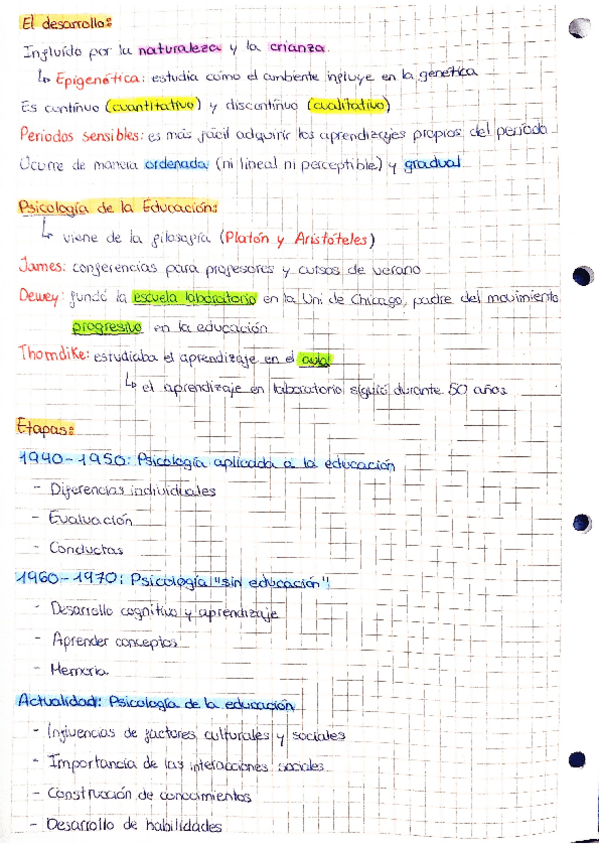 El desarrollo:
Influído por la naturaleza y la crianza.
↳ Epigenética: estudia cómo el ambiente influye en la genética
Es continuo (cuantitativo) y discontinuo (cualitativo)
Periodos sensibles: es más fácil adquirir los aprendizajes propios del periodo
Ocurre de manera ordenada (ni lineal ni perceptible) y gradual
Psicología de la Educación:
↳ viene de la filosofía (Platón y Aristóteles)
James: conferencias para profesores y cursos de verano
Dewey: fundó la escuela laboratorio en la Uni de Chicago, padre del movimiento
progresivo en la educación
Thorndike: estudiaba el aprendizaje en el aula
↳ el aprendizaje en laboratorio siguió durante 50 años
Etapas:
1940-1950: Psicología aplicada a la educación
- Diferencias individuales
- Evaluación
- Conductas
1960-1970: Psicología "sin educación"
- Desarrollo cognitivo y aprendizaje
- Aprender conceptos
- Memoria
Actualidad: Psicología de la educación
- Influencias de factores culturales y sociales
- Importancia de las interacciones sociales
- Construcción de conocimientos
- Desarrollo de habilidades